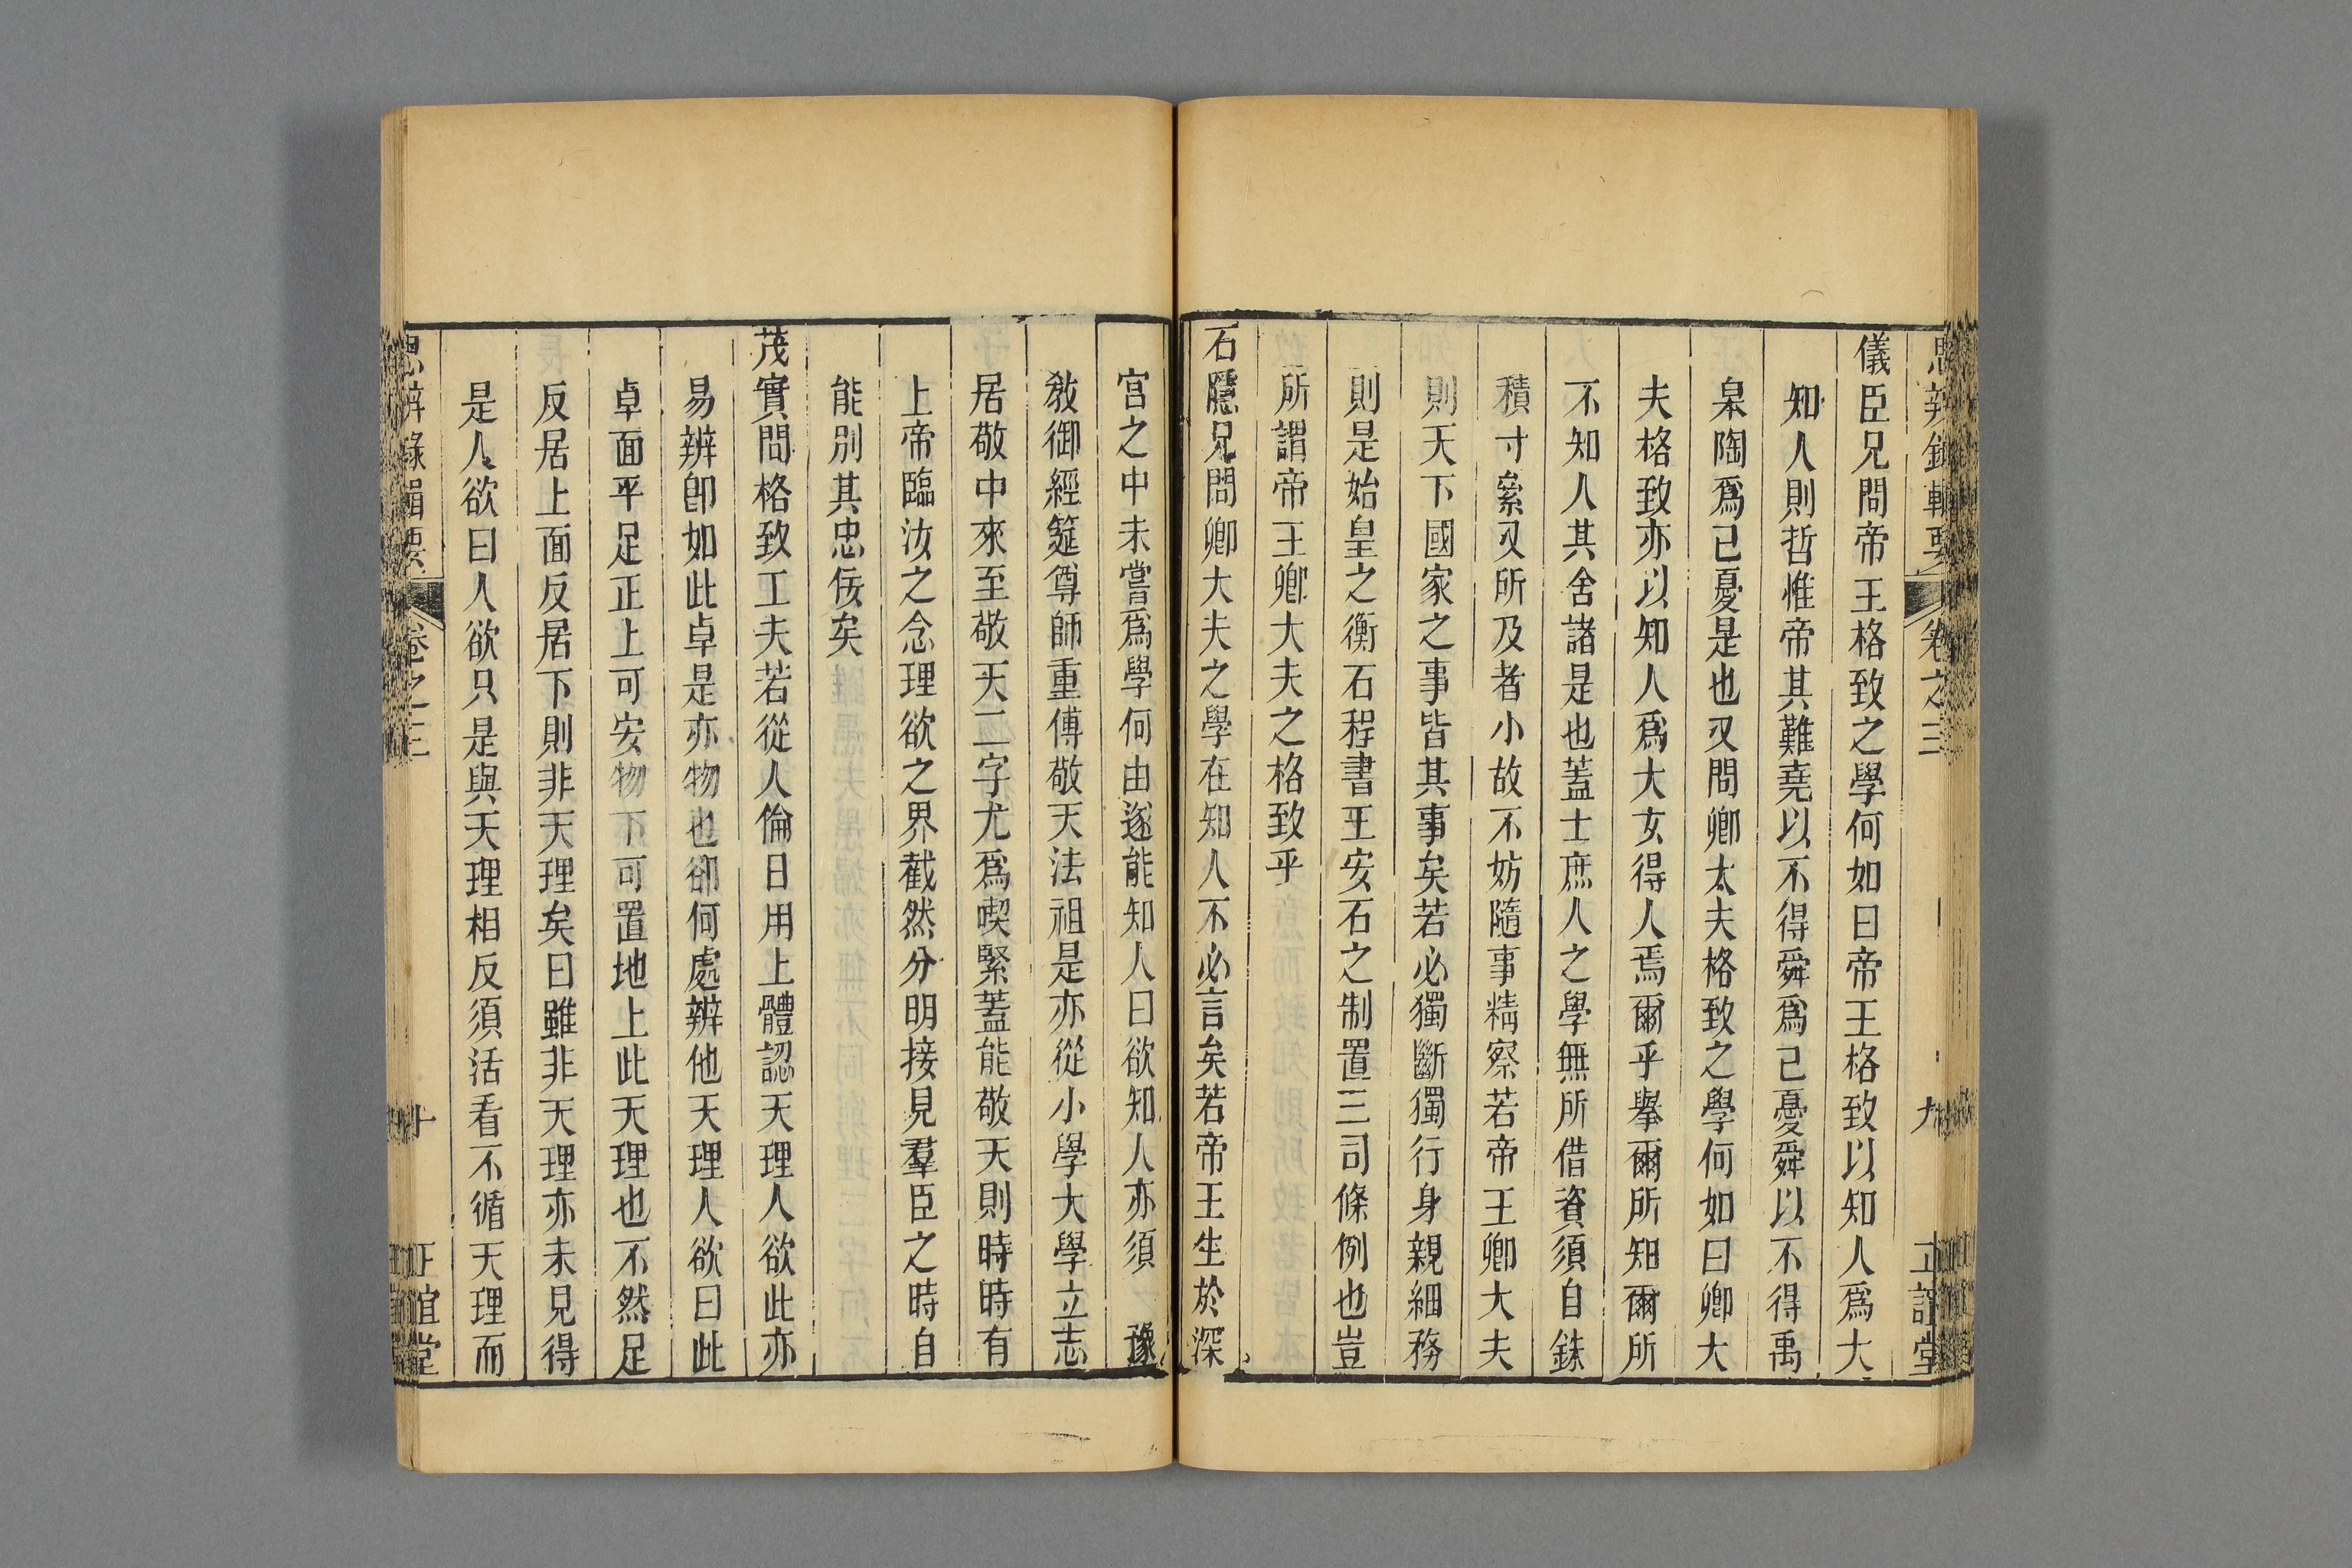 思辨錄輯要 卷之三 九 正誼堂
儀臣兄問帝王格致之學何如曰帝王格致以知人爲大
知人則哲惟帝其難堯以不得舜爲己憂舜以不得禹
臯陶爲己憂是也又問卿大夫格致之學何如曰卿大
夫格致亦以知人爲大女得人焉爾乎舉爾所知爾所
不知人其舍諸是也蓋士庶人之學無所借資須自銖
積寸絫又所及者小故不妨隨事精察若帝王卿大夫
則天下國家之事皆其事矣若必獨斷獨行身親細務
則是始皇之衡石程書王安石之制置三司條例也豈
所謂帝王卿大夫之格致乎
石隱兄問卿大夫之學在知人不必言矣若帝王生於深
宮之中未嘗爲學何由遂能知人曰欲知人亦須豫
敎御經筵尊師重傅敬天法祖是亦從小學大學立志
居敬中來至敬天二字尤爲喫緊蓋能敬天則時時有
上帝臨汝之念理欲之界截然分明接見羣臣之時自
能別其忠佞矣
茂實問格致工夫若從人倫日用上體認天理人欲此亦
易辨卽如此卓是亦物也卻何處辨他天理人欲曰此
卓面平足正上可安物下可置地上此天理也不然足
反居上面反居下則非天理矣曰雖非天理亦未見得
是人欲曰人欲只是與天理相反須活看不循天理而
思辨錄輯要 卷之三 十 正誼堂